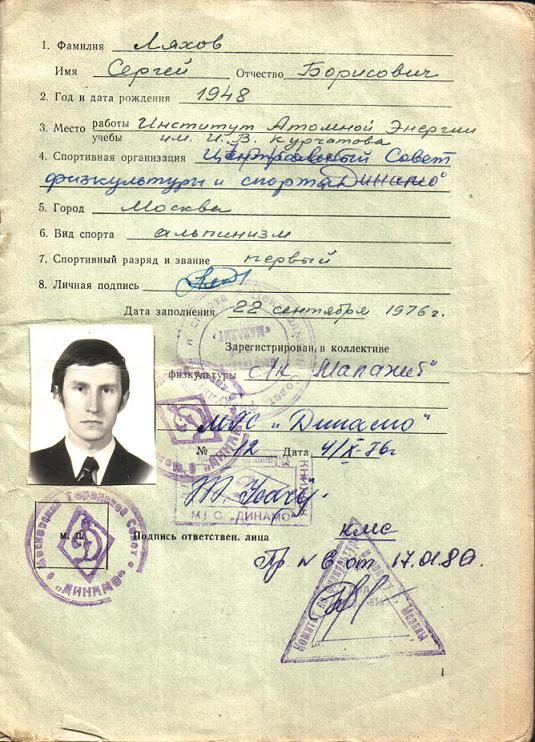 1. Фамилия Ляхов
Имя Сергей Отчество Борисович
2. Год и дата рождения 1948
3. Место работы учебы Институт Атомной Энергии
им. И.В. Курчатова
4. Спортивная организация Центральный Совет
физкультуры и спорта „Динамо"
5. Город Москва
6. Вид спорта альпинизм
7. Спортивный разряд и звание первый
8. Личная подпись
Дата заполнения 22 сентября 1976 г.
Зарегистрирован в коллективе
физкультуры
МГС „Динамо"
№ 12 Дата 4/X-76г
МГС „ДИНАМО"
м. п. Подпись ответствен. лица
Московский Городской Совет
„ДИНАМО"
кмс
Пр №6 от
Комитет по физкультуре и спорту г. Москвы
1